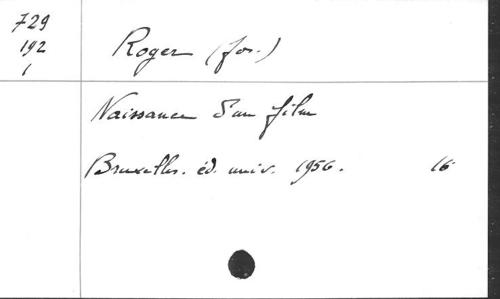 729
192
1
Roger (Jos.)
Naissance d'un film
Bruxelles. éd. univ. 1956. 16